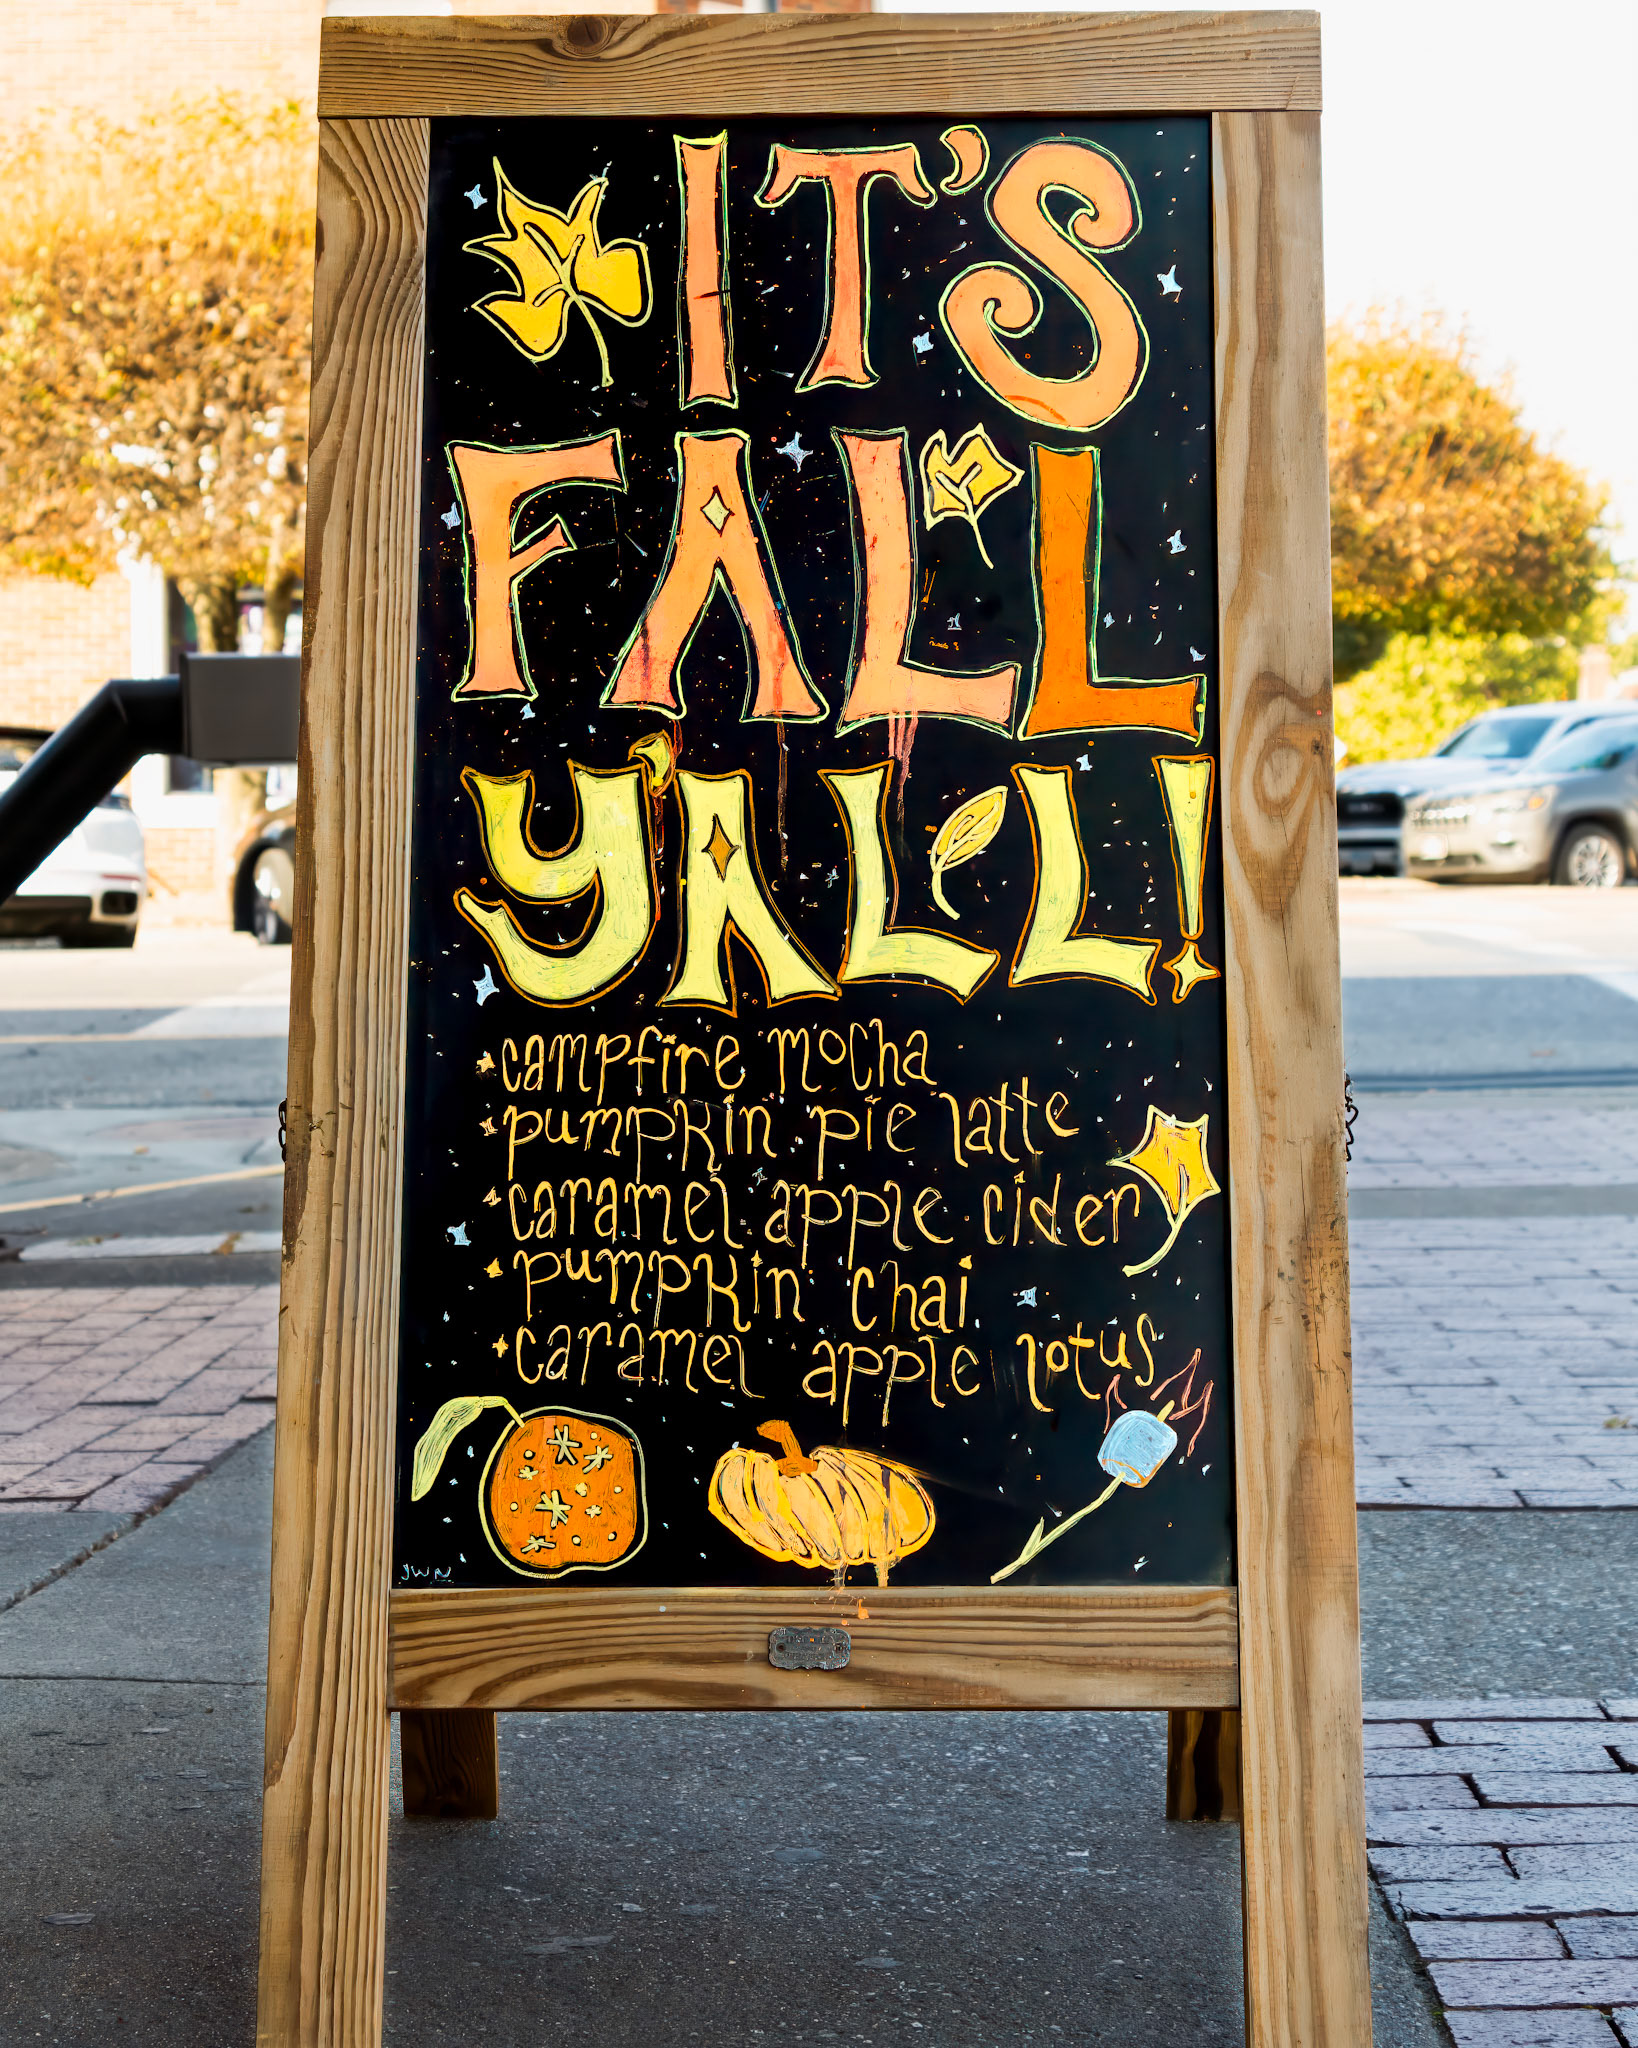 IT'S
FALL
Y'ALL!
campfire mocha
pumpkin pie latte
caramel apple cider
pumpkin chai
caramel apple lotus
JWN